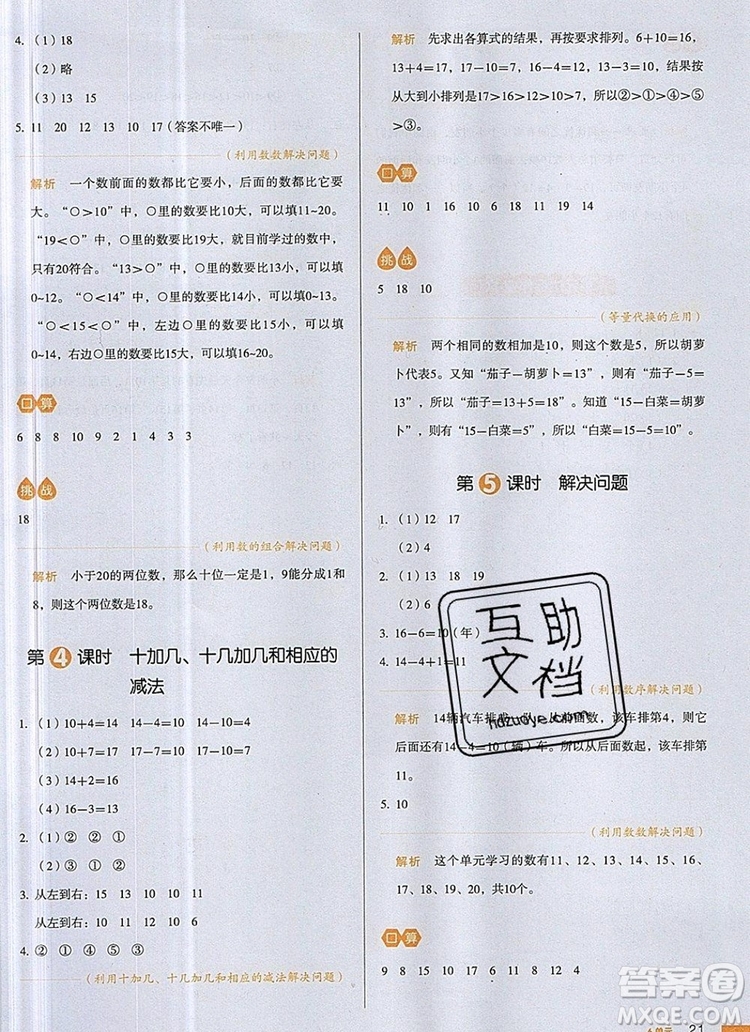 4. (1) 18
(2) 略
(3) 13 15
5. 11 20 12 13 10 17（答案不唯一）
（利用数数解决问题）
解析 一个数前面的数都比它要小，后面的数都比它要
大。“○＞10”中，○里的数要比10大，可以填11~20。
“19＜○”中，○里的数要比19大，就目前学过的数中，
只有20符合。“13＞○”中，○里的数要比13小，可以填
0~12。“○＜14”中，○里的数要比14小，可以填0~13。
“○＜15＜○”中，左边○里的数要比15小，可以填
0~14，右边○里的数要比15大，可以填16~20。
口算
6 8 8 10 9 2 1 4 3 3
挑战
18
（利用数的组合解决问题）
解析 小于20的两位数，那么十位一定是1，9能分成1和
8，则这个两位数是18。
第4课时 十加几、十几加几和相应的
减法
1. (1) 10＋4＝14 14－4＝10 14－10＝4
(2) 10＋7＝17 17－7＝10 17－10＝7
(3) 14＋2＝16
(4) 16－3＝13
2. (1) ① ② ①
(2) ③ ② ①
3. 从左到右：15 13 10 10 11
从左到右：11 10 16 6 10
4. ② ① ④ ⑤ ③
（利用十加几、十几加几和相应的减法解决问题）
解析 先求出各算式的结果，再按要求排列。6＋10＝16，
13＋4＝17，17－10＝7，16－4＝12，13－3＝10，结果按
从大到小排列是17＞16＞12＞10＞7，所以②＞①＞④＞⑤
＞③。
口算
11 10 1 16 10 6 18 11 19 14
挑战
5 18 10
（等量代换的应用）
解析 两个相同的数相加是10，则这个数是5，所以胡萝
卜代表5。又知“茄子－胡萝卜＝13”，也就是“茄子－5＝
13”，所以“茄子＝13＋5＝18”。知道“15－白菜＝胡萝
卜”，就是“15－白菜＝5”，所以“白菜＝15－5＝10”。
第5课时 解决问题
1. (1) 12 17
(2) 4
2. (1) 13 18 19
(2) 6
3. 16－6＝10（年）
4. 14
互助
文档
hdzuoye.com
（利用数序解决问题）
解析 14辆汽车排成一队，从前面数，该车排第4，则它
后面还有14－4＝10（辆）车。所以从后面数起，该车排第
11。
5. 10
（利用数数解决问题）
解析 这个单元学习的数有11、12、13、14、15、16、
17、18、19、20，共10个。
口算
9 8 15 10 10 6 12
答案圈
MXQE.COM
单元 21